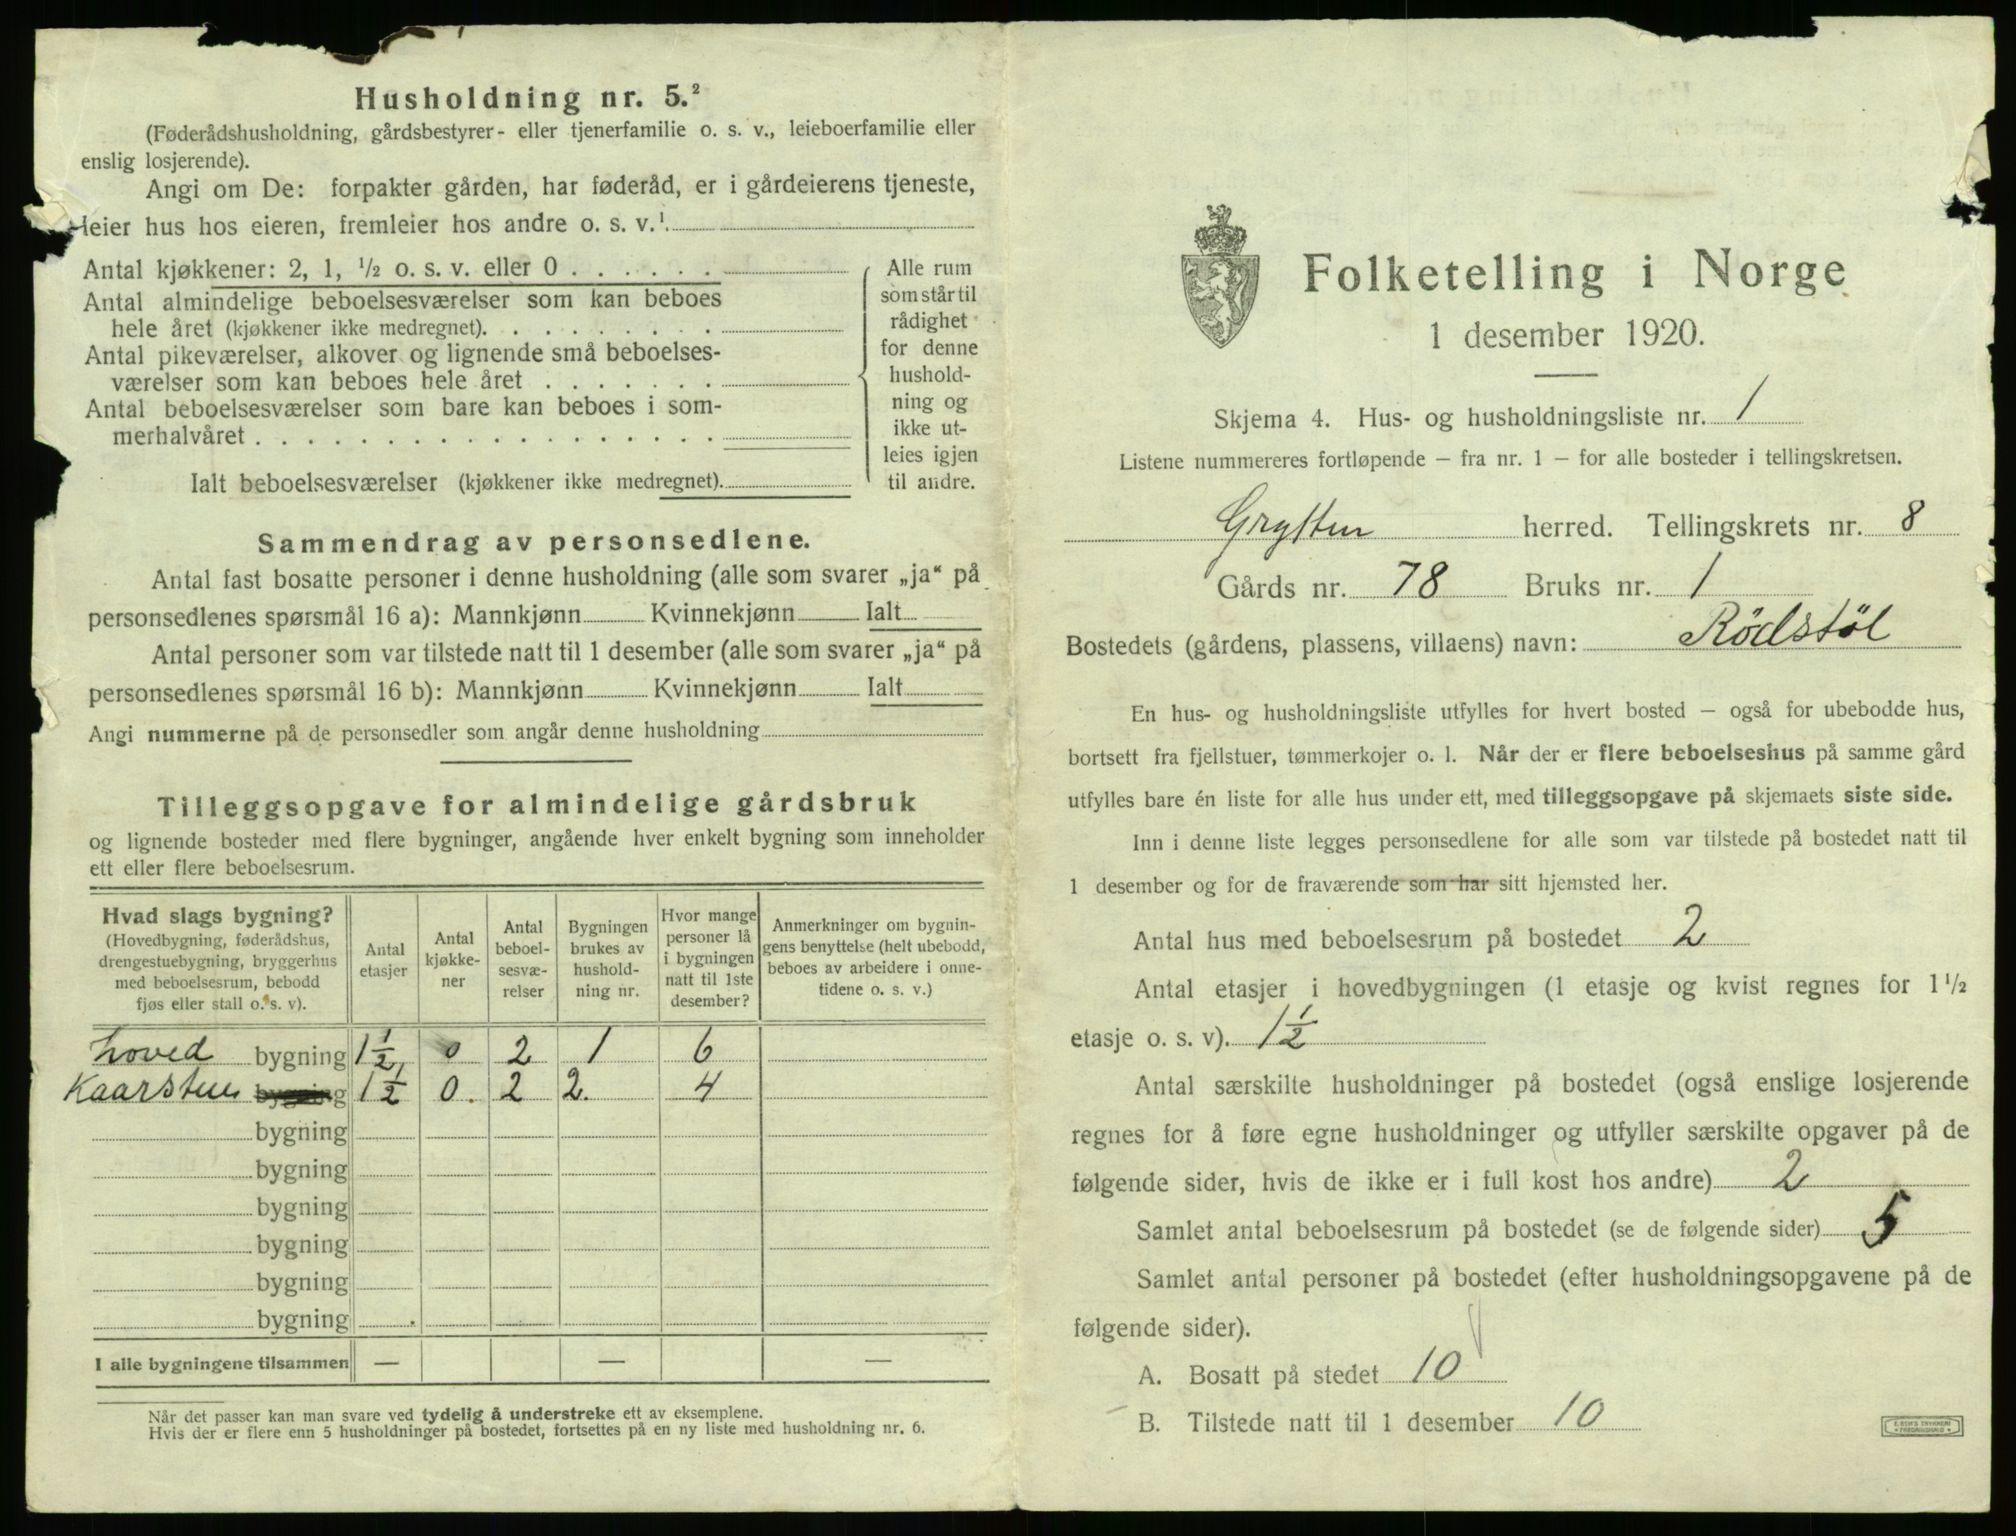 Husholdning nr. 5.²
(Føderådshusholdning, gårdsbestyrer- eller tjenerfamilie o. s. v., leieboerfamilie eller
enslig losjerende).
Angi om De: forpakter gården, har føderåd, er i gårdeierens tjeneste,
leier hus hos eieren, fremleier hos andre o. s. v.¹.
Antal kjøkkener: 2, 1, ½ o. s. v. eller 0 . . . . . .
Antal almindelige beboelsesværelser som kan beboes
hele året (kjøkkener ikke medregnet). . . . . . . . .
Antal pikeværelser, alkover og lignende små beboelses-
værelser som kan beboes hele året . . . . . . .
Antal beboelsesværelser som bare kan beboes i som-
merhalvåret . . . . . . . . . . . . . . . . . .
Ialt beboelsesværelser (kjøkkener ikke medregnet).
Alle rum
som står til
rådighet
for denne
hushold-
ning og
ikke ut-
leies igjen
til andre.
Sammendrag av personsedlene.
Antal fast bosatte personer i denne husholdning (alle som svarer „ja“ på
personsedlenes spørsmål 16 a): Mannkjønn Kvinnekjønn Ialt
Antal personer som var tilstede natt til 1 desember (alle som svarer „ja“ på
personsedlenes spørsmål 16 b): Mannkjønn Kvinnekjønn Ialt
Angi nummerne på de personsedler som angår denne husholdning
Tilleggsopgave for almindelige gårdsbruk
og lignende bosteder med flere bygninger, angående hver enkelt bygning som inneholder
ett eller flere beboelsesrum.
Hvad slags bygning?
(Hovedbygning, føderådshus,
drengestuebygning, bryggerhus
med beboelsesrum, bebodd
fjøs eller stall o. s. v).
Antal
etasjer
Antal
kjøkke-
ner
Antal
beboel-
sesvæ-
relser
Bygningen
brukes av
hushold-
ning nr.
Hvor mange
personer lå
i bygningen
natt til 1ste
desember?
Anmerkninger om bygnin-
gens benyttelse (helt ubebodd,
beboes av arbeidere i onne-
tidene o. s. v.)
hoved bygning 1½ 0 2 1 6
Kaarstuen bygning 1½ 0. 2 2. 4
bygning
bygning
bygning
bygning
bygning
bygning
I alle bygningene tilsammen — — —
Når det passer kan man svare ved tydelig å understreke ett av eksemplene.
Hvis der er flere enn 5 husholdninger på bostedet, fortsettes på en ny liste med husholdning nr. 6.
Folketelling i Norge
1 desember 1920.
Skjema 4. Hus- og husholdningsliste nr. 1
Listene nummereres fortløpende – fra nr. 1 – for alle bosteder i tellingskretsen.
Grytten herred. Tellingskrets nr. 8
Gårds nr. 78 Bruks nr. 1
Bostedets (gårdens, plassens, villaens) navn: Rödstöl
En hus- og husholdningsliste utfylles for hvert bosted – også for ubebodde hus,
bortsett fra fjellstuer, tømmerkojer o. l. Når der er flere beboelseshus på samme gård
utfylles bare én liste for alle hus under ett, med tilleggsopgave på skjemaets siste side.
Inn i denne liste legges personsedlene for alle som var tilstede på bostedet natt til
1 desember og for de fraværende som har sitt hjemsted her.
Antal hus med beboelsesrum på bostedet 2
Antal etasjer i hovedbygningen (1 etasje og kvist regnes for 1½
etasje o. s. v). 1½
Antal særskilte husholdninger på bostedet (også enslige losjerende
regnes for å føre egne husholdninger og utfyller særskilte opgaver på de
følgende sider, hvis de ikke er i full kost hos andre) 2
Samlet antal beboelsesrum på bostedet (se de følgende sider) 5
Samlet antal personer på bostedet (efter husholdningsopgavene på de
følgende sider).
A. Bosatt på stedet 10
B. Tilstede natt til 1 desember 10